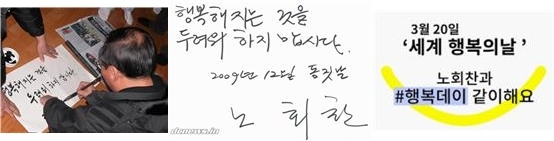 행복해지는 것을
두려워 하지
행복해지는 것을
두려워 하지 맙시다.
2009년 12월 동짓날
노 회 찬
3월 20일
‘세계 행복의날 ’
노회찬과
#행복데이 같이해요